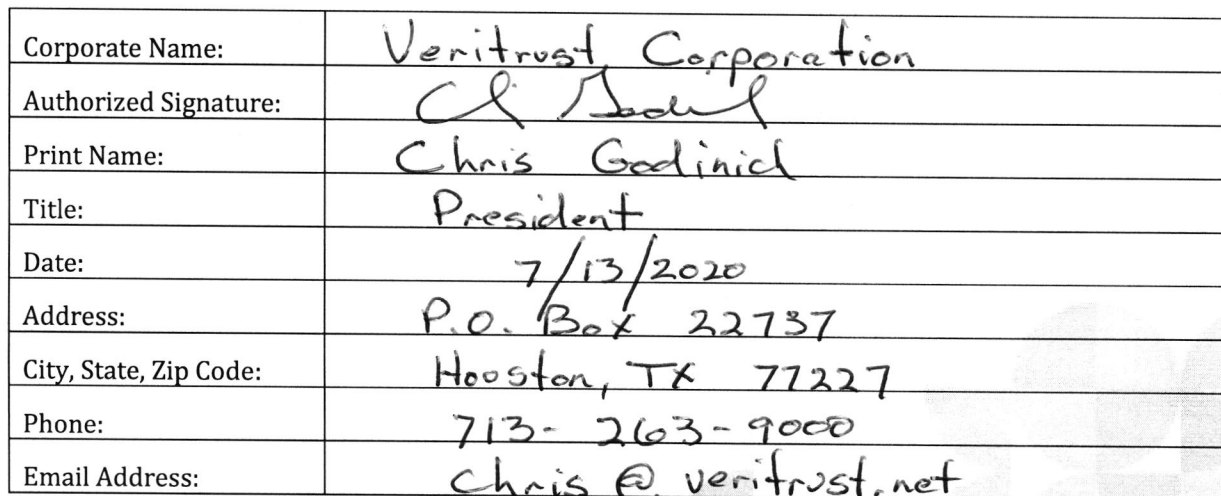 Corporate Name: Veritrust Corporation
Authorized Signature:
Print Name: Chris Godinich
Title: President
Date: 7/13/2020
Address: P.O. Box 22737
City, State, Zip Code: Houston, TX 77227
Phone: 713-263-9000
Email Address: chris@veritrust.net